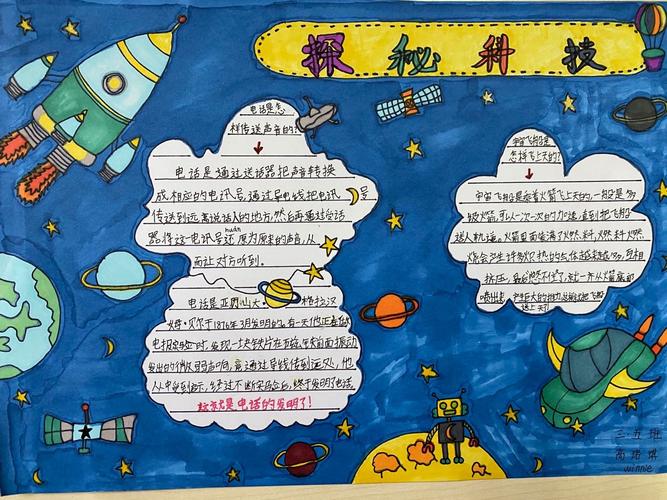 探秘科技
电话是怎
样传送声音的?
电话是通过送话器把声音转换
成相应的电讯号,通过导电线把电讯号
传送到远离说话人的地方,然后再通过会话
器将这电讯号还原为原来的声音,从
huán
而让对方听到。
电话是亚历山大·格拉汉
姆·贝尔于1876年3月发明的。有一天他正在做
电报实验时,发现一块铁片在前面振动
发出的微弱声响,通过导线传到远处,他
从中受到启示,经过不断实验后,终于发明了电话。
这就是电话的发明了!
宇宙飞船是
怎样飞上天的?
宇宙飞船是靠着火箭飞上天的,一般是多
级火箭,可以一次一次的加速,直到把飞船
送入轨道。火箭里面装满了燃料,燃料燃
烧会产生许多气体
挤压,最后从火箭尾部
喷出去,
送上天
三、五班
winnie